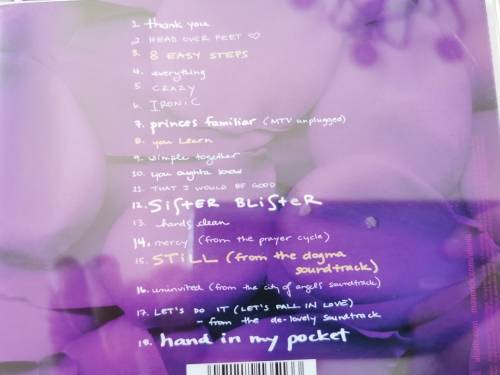 1. thank you
2. HEAD OVER FEET ♡
3. 8 EASY STEPS
4. everything
5. CRAZY
6. IRONIC
7. princes familiar (MTV unplugged)
8. you learn
9. simple together
10. you oughta know
11. THAT I WOULD BE GOOD
12. SiSTER BLiSTeR
13. hands clean
14. mercy (from the prayer cycle)
15. STiLL (from the dogma
soundtrack)
16. uninvited (from the city of angels soundtrack)
17. LET'S DO IT (LET'S FALL IN LOVE)
- from the de-lovely soundtrack
18. hand in my pocket